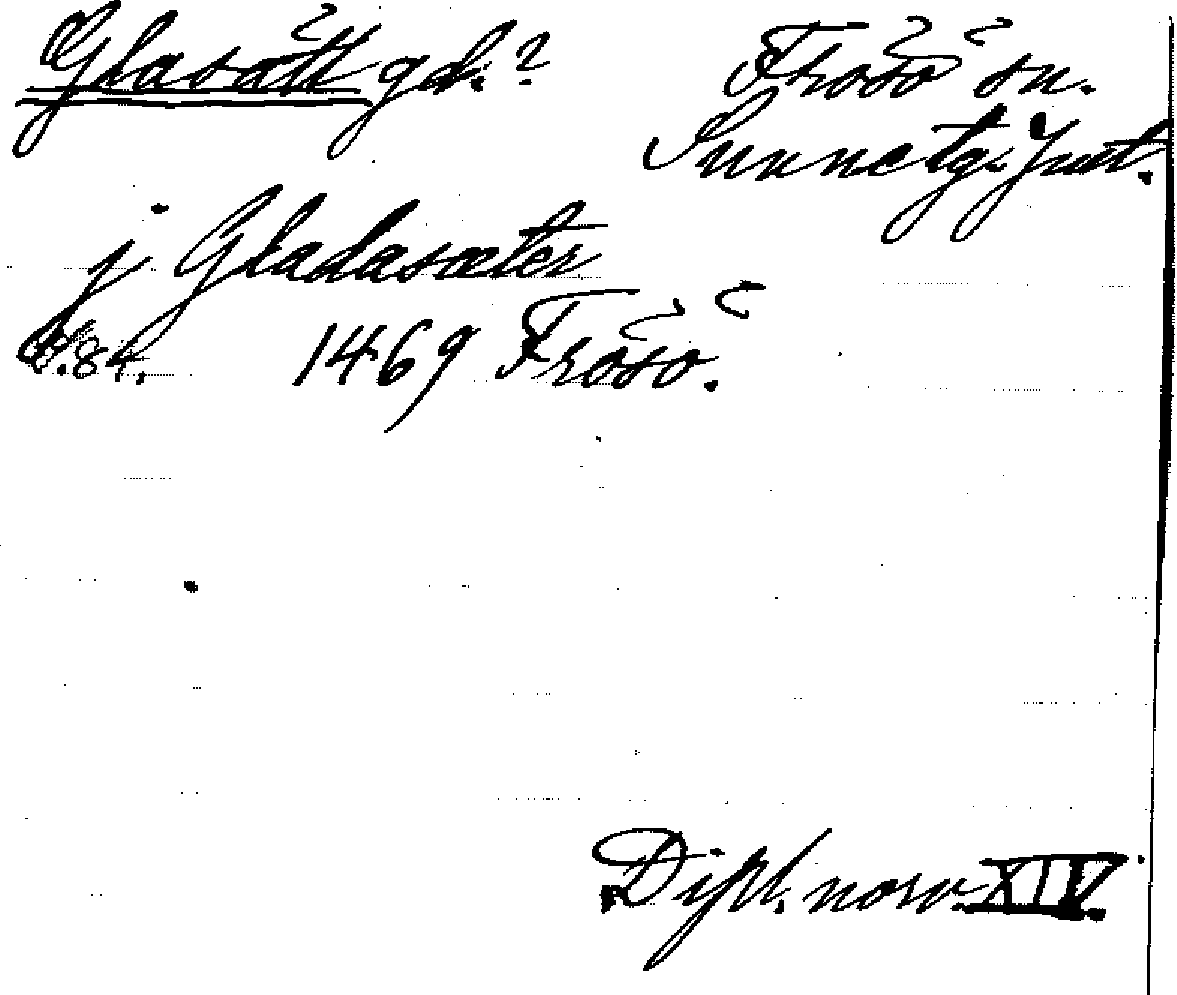 Glasätt gd.? Frösö sn.
Sunne tg. Jmt.
j Gladasæter
84. 1469 Frösö.
Dipl. norv. XIV.